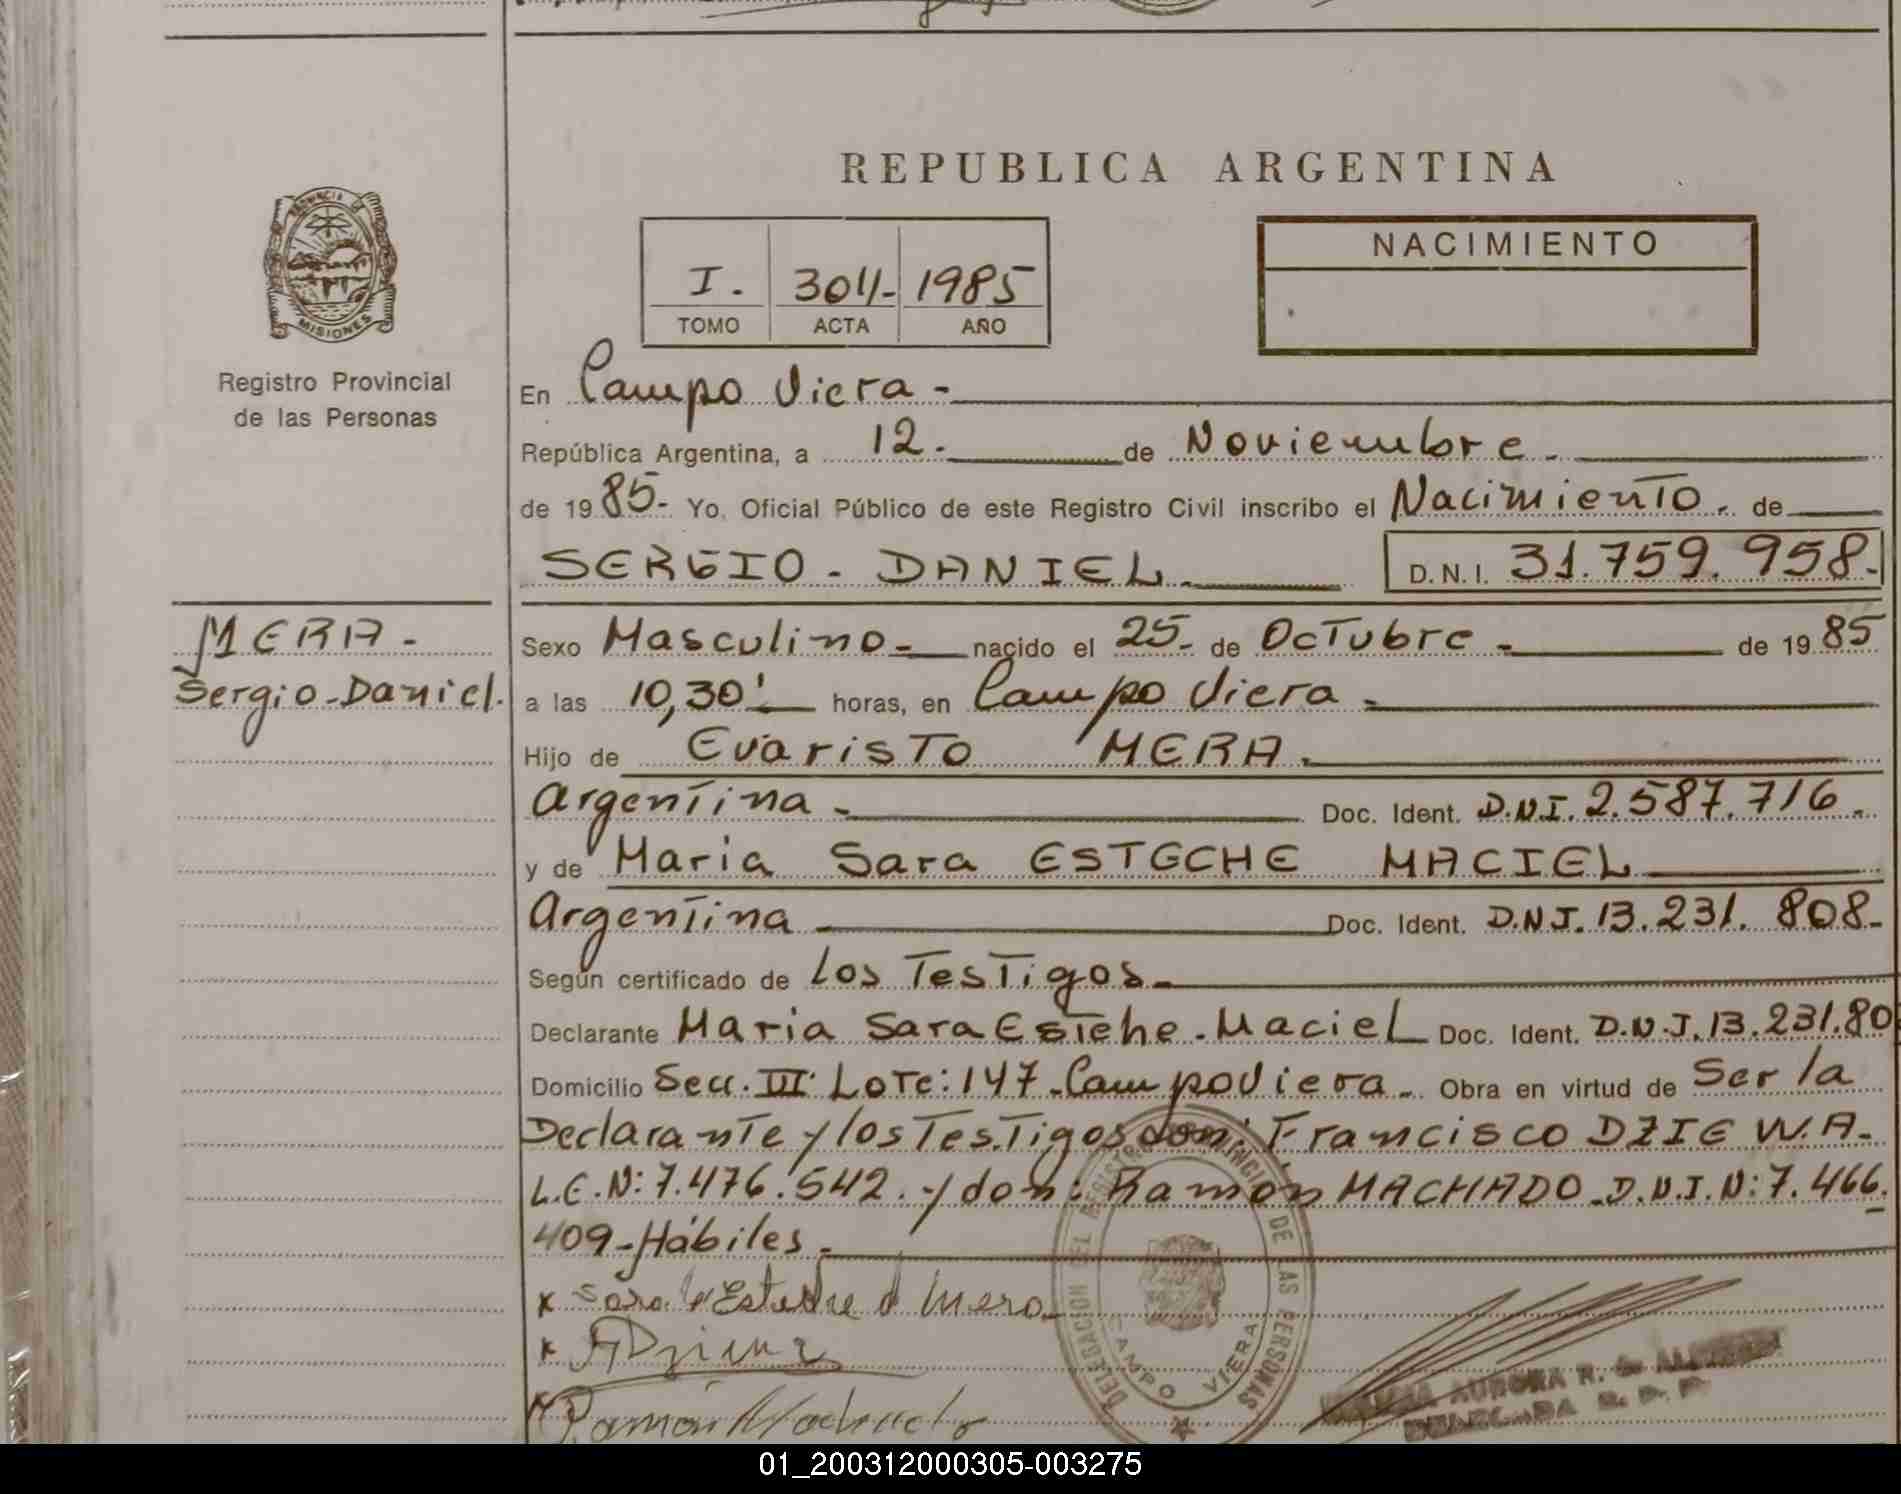 REPUBLICA ARGENTINA
PROVINCIA DE
MISIONES
Registro Provincial
de las Personas
I. 304- 1985
TOMO ACTA AÑO
NACIMIENTO
En Campo Viera -
República Argentina, a 12. de Noviembre.
de 1985- Yo, Oficial Público de este Registro Civil inscribo el Nacimiento. de
SERGIO - DANIEL. D.N.I. 31.759.958-
MERA -
Sergio-Daniel.
Sexo Masculino - nacido el 25- de Octubre - de 1985
a las 10,30' horas, en Campo Viera -
Hijo de Evaristo MERA.
Argentina - Doc. Ident. D.N.I. 2.587.716.
y de Maria Sara ESTECHE MACIEL
Argentina Doc. Ident. D.N.I. 13.231.808-
Según certificado de los Testigos -
Declarante Maria Sara Estehe - Maciel Doc. Ident. D.N.I. 13.231.80
Domicilio Secc. III Lote: 147 - Campo Viera - Obra en virtud de Ser la
Declarante y los Testigos don: Francisco DZIEWA-
L.E.N: 7.476.542. y don: Ramón MACHADO - D.N.I.N: 7.466.
409 - Hábiles -
x Sara Esteche d Mera
x
x Ramón Machado
DELEGACION DEL REGISTRO PROVINCIAL DE LAS PERSONAS
CAMPO VIERA
AURORA R. de
01_200312000305-003275